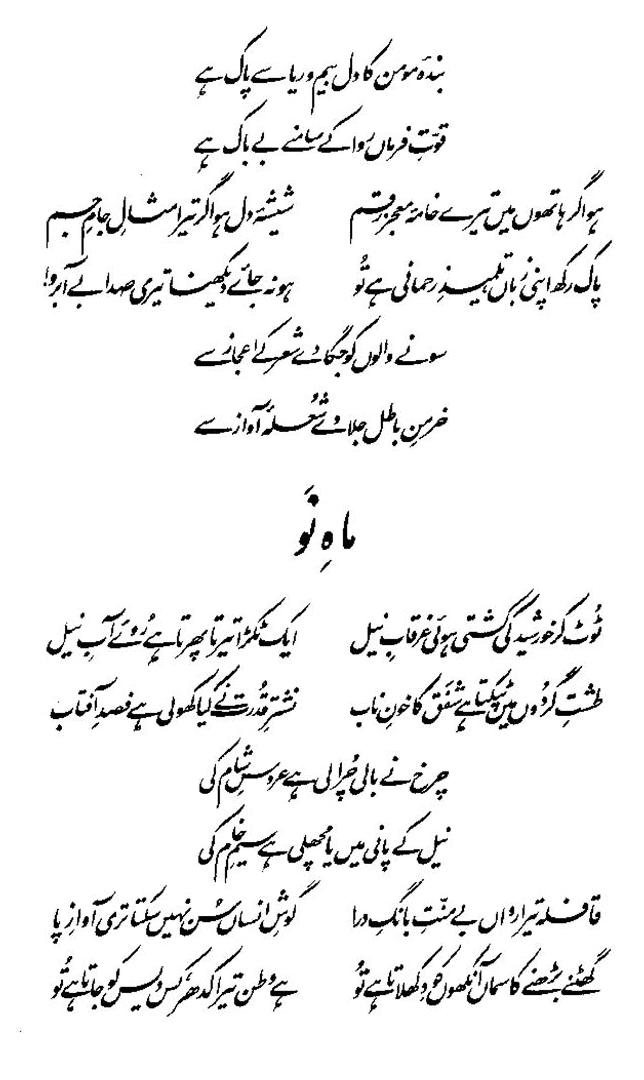 بندۂ مومن کا دل بیم و ریا سے پاک ہے
قوّتِ فرماں روا کے سامنے بے باک ہے
ہو اگر ہاتھوں میں تیرے خامۂ معجز رقم شیشۂ دل ہو اگر تیرا مثالِ جامِ جم
پاک رکھ اپنی زباں تلمیذِ رحمانی ہے تُو ہو نہ جائے دیکھنا تیری صدا بے آبرو!
سونے والوں کو جگا دے شعر کے اعجاز سے
خرمنِ باطل جلا دے شُعلۂ آواز سے
ماہِ نَو
ٹُوٹ کر خورشید کی کشتی ہوئی غرقابِ نیل ایک ٹکڑا تیرتا پھرتا ہے رُوئے آبِ نیل
طشتِ گردُوں میں ٹپکتا ہے شفَق کا خونِ ناب نشترِ قُدرت نے کیا کھولی ہے فصدِ آفتاب
چرخ نے بالی چُرا لی ہے عروسِ شام کی
نیل کے پانی میں یا مچھلی ہے سیمِ خام کی
قافلہ تیرا رواں بے منّتِ بانگِ درا گوشِ انساں سُن نہیں سکتا تری آوازِ پا
گھٹنے بڑھنے کا سماں آنکھوں کو دکھلاتا ہے تُو ہے وطن تیرا کدھر، کس دیس کو جاتا ہے تُو